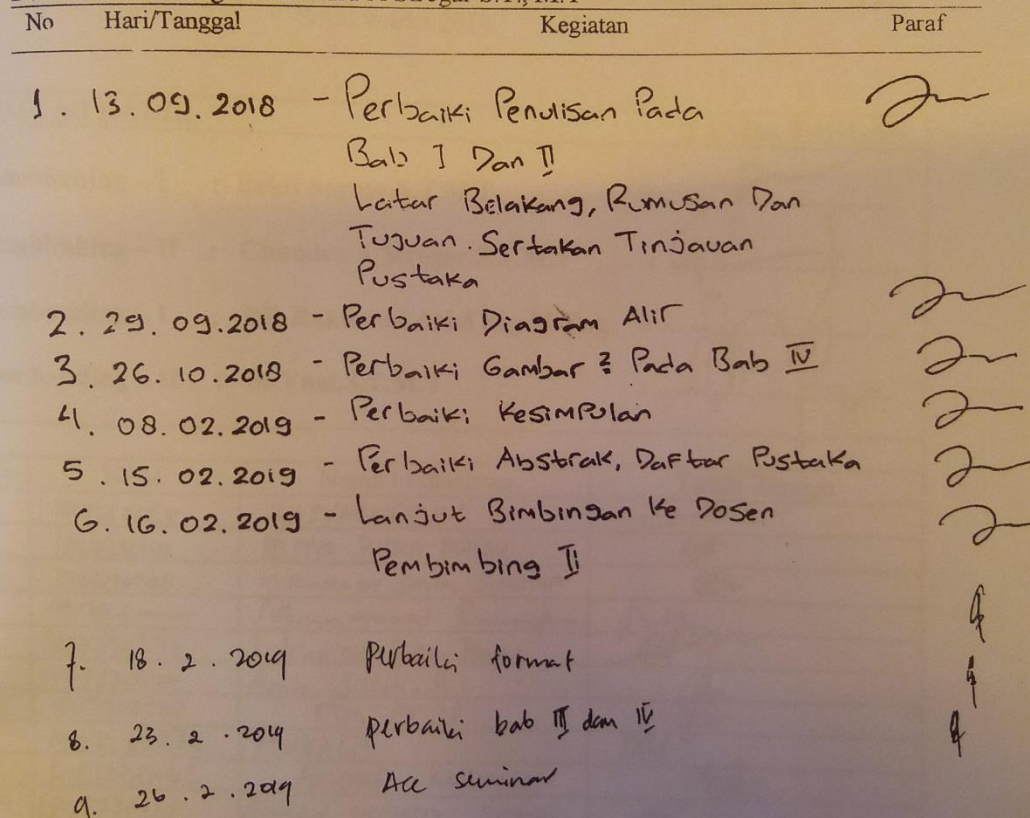 No Hari/Tanggal Kegiatan Paraf
1. 13.09.2018 - Perbaiki Penulisan Pada
Bab I Dan II
Latar Belakang, Rumusan Dan
Tujuan. Sertakan Tinjauan
Pustaka
2. 29.09.2018 - Perbaiki Diagram Alir
3. 26.10.2018 - Perbaiki Gambar 2 Pada Bab IV
4. 08.02.2019 - Perbaiki Kesimpulan
5. 15.02.2019 - Perbaiki Abstrak, Daftar Pustaka
6. 16.02.2019 - Lanjut Bimbingan Ke Dosen
Pembimbing II
7. 18.2.2019 Perbaiki format
8. 23.2.2019 perbaiki bab III dan IV
9. 26.2.2019 Acc seminar